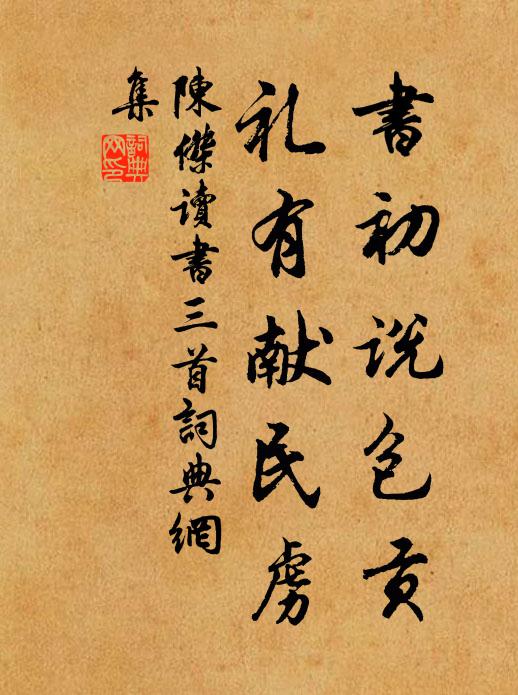 書初説包貢
礼有献民虜
陳傑讀書三首詞典網
集
詞典
网印